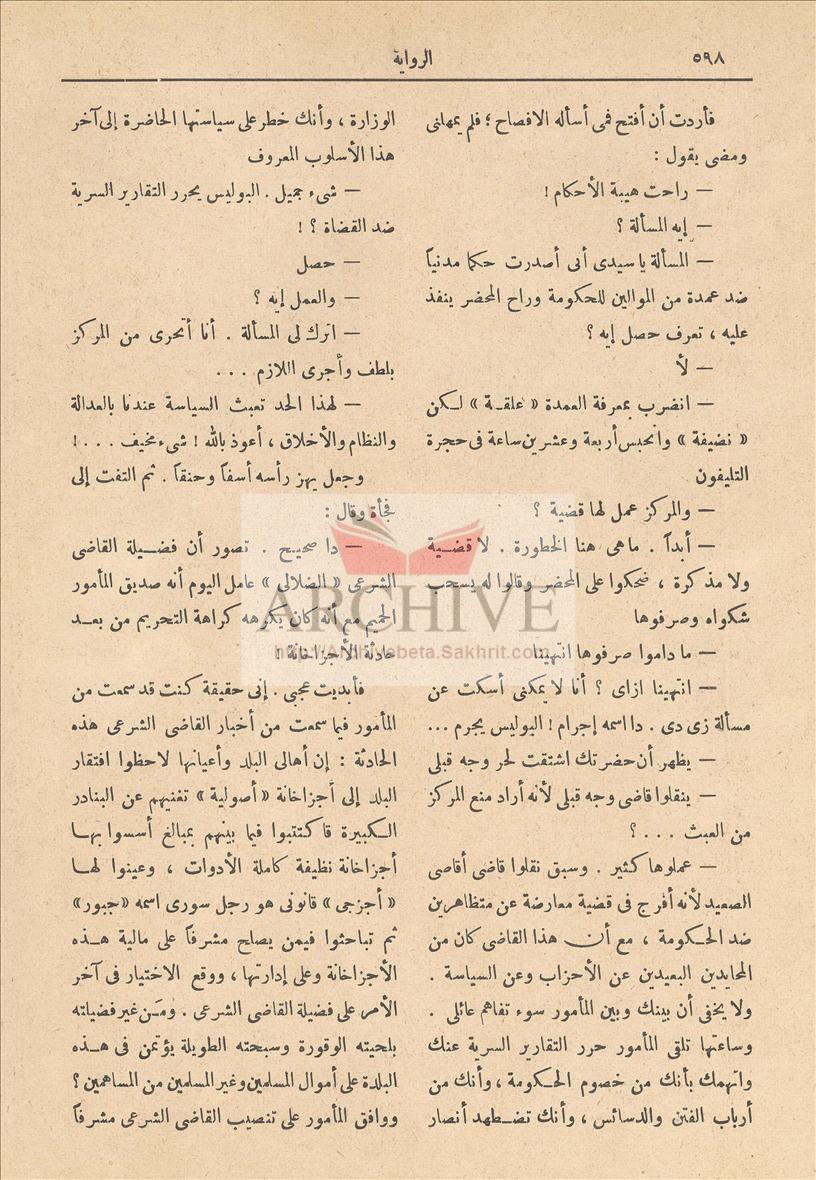 ٥٩٨
الرواية
فأردت أن أفتح فمى أسأله الافصاح ؛ فلم يمهلنى
ومضى يقول :
— راحت هيبة الأحكام !
— إيه المسألة ؟
— المسألة ياسيدى أنى أصدرت حكما مدنياً
ضد عمدة من الموالين للحكومة وراح المحضر ينفذ
عليه ، تعرف حصل إيه ؟
— لأ
— انضرب بمعرفة العمدة « علقة » لكن
« نضيفة » وانحبس أربعة وعشرين ساعة فى حجرة
التليفون
— والمركز عمل لها قضية ؟
— أبداً . ماهى هنا الخطورة . لا قضية
ولا مذكرة ، ضحكوا على المحضر وقالوا له يسحب
شكواه وصرفوها
— ما داموا صرفوها انتهينا
— انتهينا ازاى ؟ أنا لا يمكنى أسكت عن
مسألة زى دى . دا اسمه إجرام ! البوليس يجرم ...
— يظهر أن حضرتك اشتقت لحر وجه قبلى
— ينقلوا قاضى وجه قبلى لأنه أراد منع المركز
من العبث . . . ؟
— عملوها كثير . وسبق نقلوا قاضى أقاصى
الصعيد لأنه أفرج فى قضية معارضة عن متظاهرين
ضد الحكومة ، مع أن هذا القاضى كان من
المحايدين البعيدين عن الأحزاب وعن السياسة .
ولا يخفى أن بينك وبين المأمور سوء تفاهم عائلى .
وساعتها تلقى المأمور حرر التقارير السرية عنك
واتهمك بأنك من خصوم الحكومة ، وأنك من
أرباب الفتن والدسائس ، وأنك تضطهد أنصار
الوزارة ، وأنك خطر على سياستها الحاضرة إلى آخر
هذا الأسلوب المعروف
— شىء جميل . البوليس يحرر التقارير السرية
ضد القضاة ؟ !
— حصل
— والعمل إيه ؟
— اترك لى المسألة . أنا أتحرى من المركز
بلطف وأجرى اللازم . . .
— لهذا الحد تعبث السياسة عندنا بالعدالة
والنظام والأخلاق ، أعوذ بالله ! شىء مخيف . . . !
وجعل يهز رأسه أسفاً وحنقاً . ثم التفت إلى
فجأة وقال :
— دا صحيح . تصور أن فضيلة القاضى
الشرعى « الضلالى » عامل اليوم أنه صديق المأمور
الحميم مع أنه كان يكرهه كراهة التحريم من بعد
حادثة الأجزاخانة !
فأبديت عجبى . إنى حقيقة كنت قد سمعت من
المأمور فيما سمعت من أخبار القاضى الشرعى هذه
الحادثة : إن أهالى البلد وأعيانها لاحظوا افتقار
البلد إلى أجزاخانة « أصولية » تغنيهم عن البنادر
الكبيرة فاكتتبوا فيما بينهم بمبالغ أسسوا بها
أجزاخانة نظيفة كاملة الأدوات ، وعينوا لها
« أجزجى » قانونى هو رجل سورى اسمه « جبور »
ثم تباحثوا فيمن يصلح مشرفاً على مالية هذه
الأجزاخانة وعلى إدارتها ، ووقع الاختيار فى آخر
الأمر على فضيلة القاضى الشرعى . ومَن غير فضيلته
بلحيته الوقورة وسبحته الطويلة يؤتمن فى هذه
البلدة على أموال المسلمين وغير المسلمين من المساهمين ؟
ووافق المأمور على تنصيب القاضى الشرعى مشرفاً
ARCHIVE
http://Archivebeta.Sakhrit.com